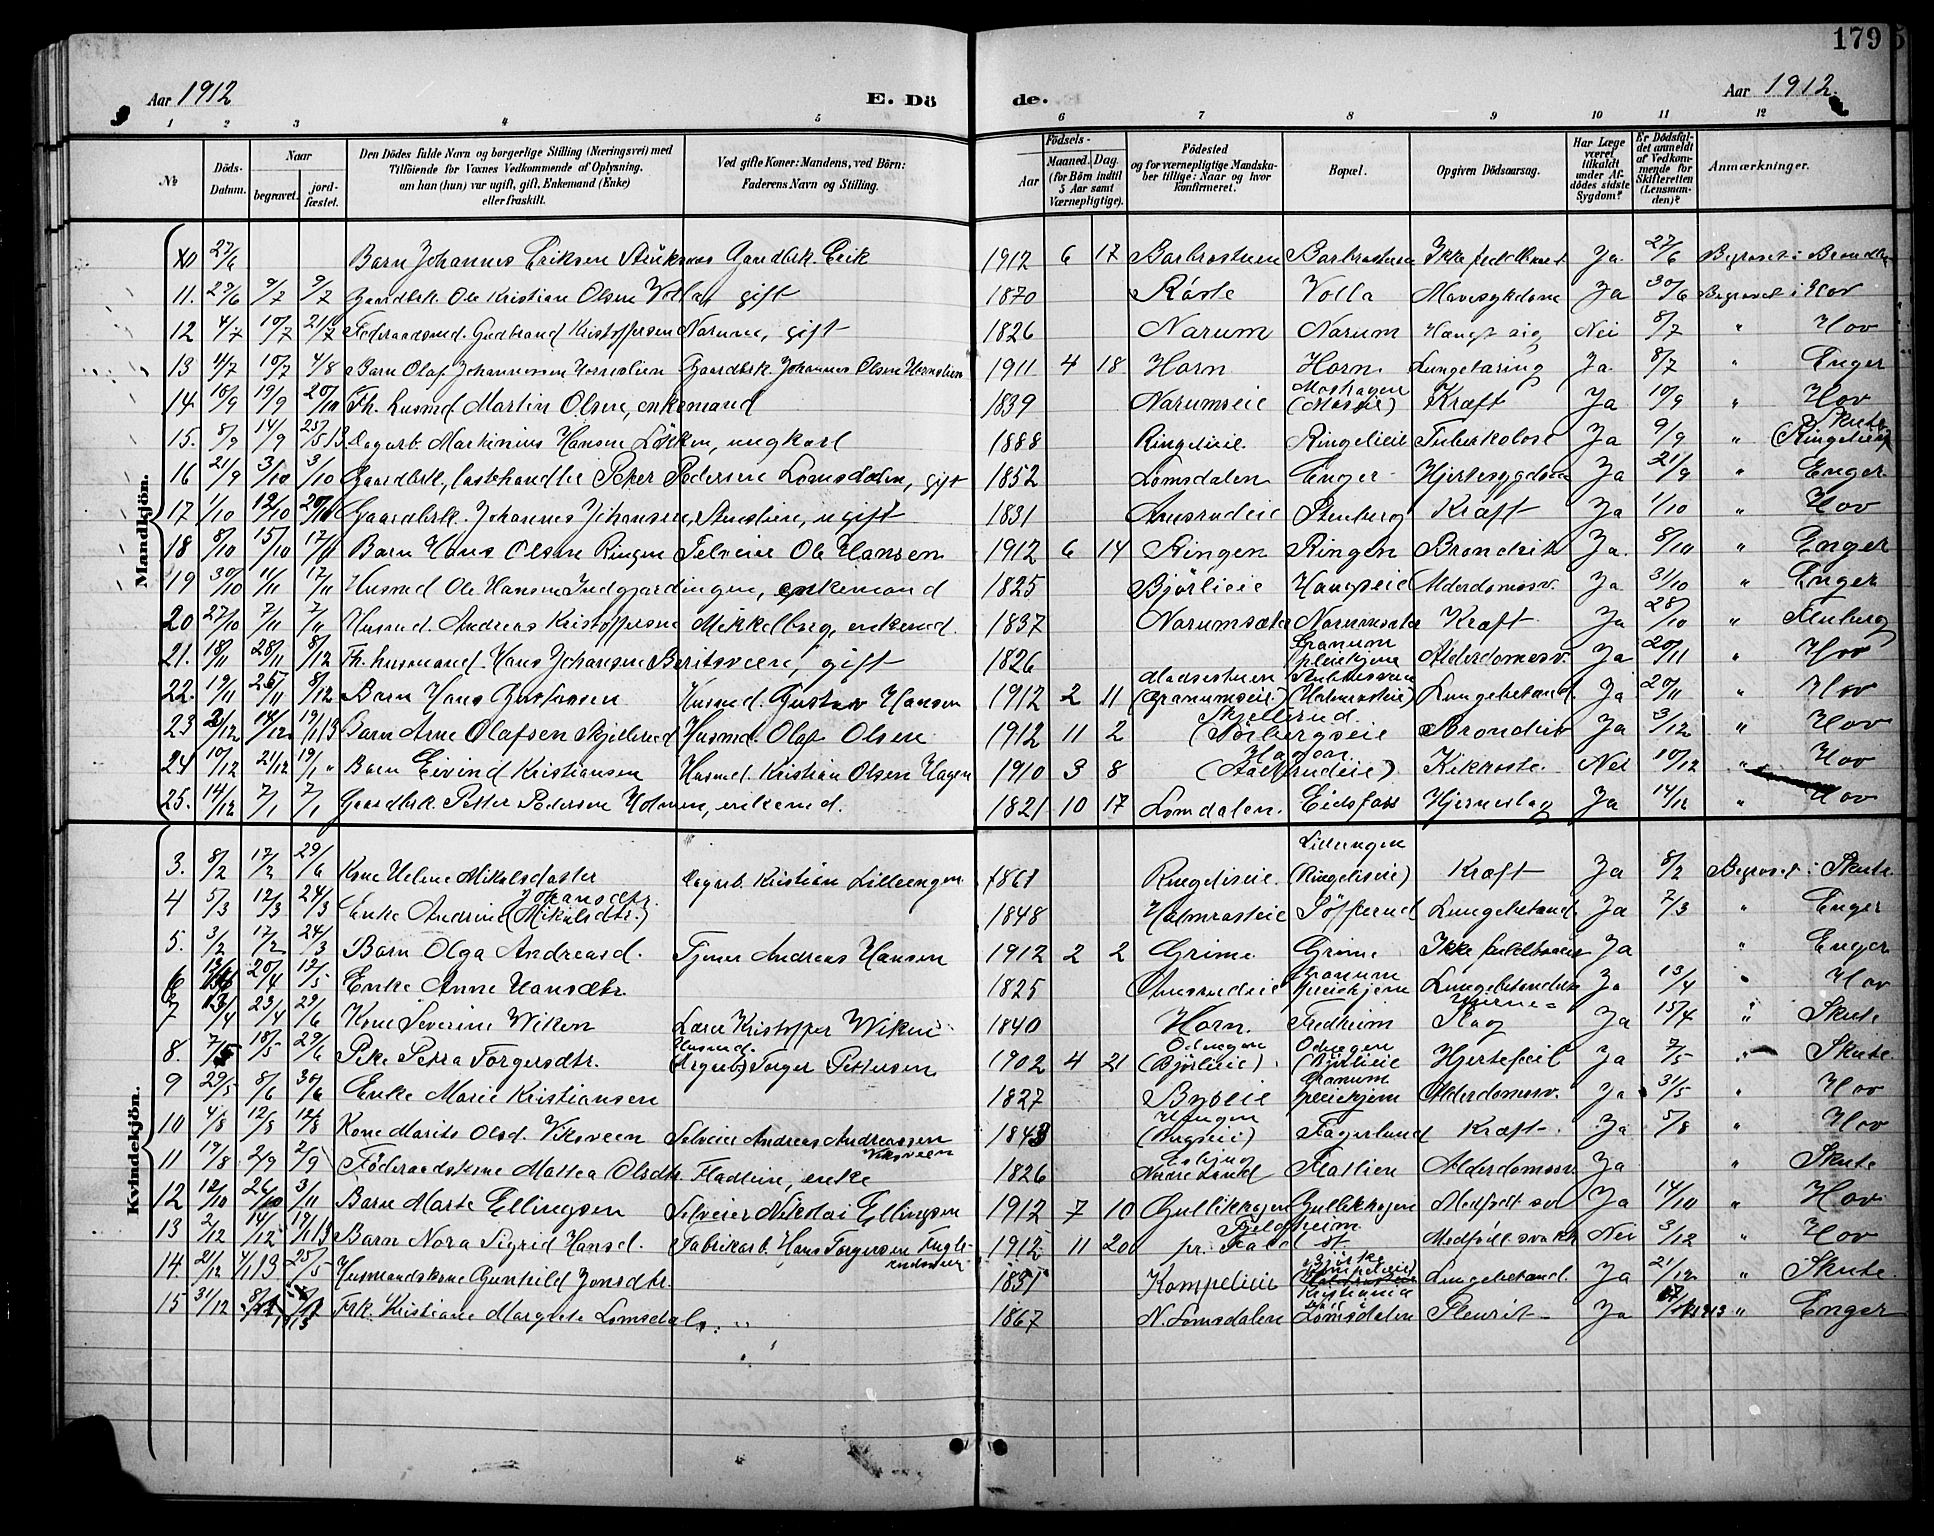 179
Aar 1912 E. Dö de. Aar 1912.
1 2 3 4 5 6 7 8 9 10 11 12
№ Döds-Datum. Naar begravet. jordfæstet. Den Dödes fulde Navn og borgerlige Stilling (Næringsvei) med Tilföiende for Voxnes Vedkommende af Oplysning, om han (hun) var ugift, gift, Enkemand (Enke) eller fraskilt. Ved gifte Koner: Mandens, ved Börn: Faderens Navn og Stilling. Födsels- Aar Maaned. Dag. (for Börn indtil 5 Aar samt Værnepligtige). Födested og for værnepligtige Mandskaber tillige: Naar og hvor konfirmeret. Bopæl. Opgiven Dödsaarsag. Har Læge været tilkaldt under Afdödes sidste Sygdom? Er Dödsfaldet anmeldt af Vedkommende for Skifteretten (Lensmanden)? Anmærkninger.
Mandkjön.
10 27/6 Barn Johannes Eriksen Gaardbrk. Erik 1912 6 17 Barbrostuen Barbrostuen Ja 27/6 Begravet i
11. 29/6 9/7 9/7 Gaardbrk. Ole Kristian Olsen Volla, gift 1870 Röste Volla Mavesykdom Ja 30/6 Begravet i Hov
12 4/7 10/7 21/7 Föderaadsmd. Gudbrand Kristoffersen Narum, gift 1826 Narum Narum Hængt sig Nei 8/7 " Hov
13 4/7 10/7 4/8 Barn Olaf Johannessen Hornslien Gaardbrk. Johannes Olsen Hornslien 1911 4 18 Horn Horn. Lungetæring Ja 8/7 " Enger
14 10/9 19/9 20/10 Fh. Husmd Martin Olsen, enkemand 1839 Narumseie Moshagen (Moseie) Kræft Ja 10/9 " Hov
15. 8/9 14/9 25/5 13 Dagarb. Martinius Hansen Lökken, ungkarl 1888 Ringelieie. Ringelieie Tuberkolose Ja 9/9 " Skute (Ringelien)
16 21/9 3/10 3/10 Gaardbrk, lastehandler Peter Pedersen Lomsdalen, gift 1852 Lomsdalen Enger Hjertesygdom Ja 21/9 " Enger
17 1/10 12/10 20/10 Gaardbrk. Johannes Johansen, Stenslien, ugift 1831 Amsrudeie Stenberg Kræft Ja 1/10 " Hov
18 8/10 15/10 17/11 Barn Hans Olsen Ringen Selveier Ole Hansen 1912 6 14 Ringen Ringen Bronchit Ja. 8/10 " Enger
19 30/10 11/11 17/11 Husmd Ole Hansen Indgjærdingen, enkemand 1825 Björlieie Haugseie Alderdomssv. Ja 31/10 " Enger
20 27/10 7/11 7/11 Husmd. Andreas Kristoffersen Mikkelberg, enkemd. 1837 Narumsæter Narumsæter Kræft Ja 28/10 " Fluberg
21. 18/11 28/11 8/12 Fh. husmand. Hans Johansen Beritsveen, gift 1826 Granum pleiehjem Alderdomssv. Ja 20/11 " Hov
22. 19/11 25/11 8/12 Barn Hans Gustavsen Husmd. Gustav Hansen 1912 2 11 Madsestuen (Granumseie) (Halmrasteie) Lungebetænd. Ja 20/11 " Hov
23 2/12 14/12 19/1 13 Barn Arne Olafsen Skjellerud Husmd. Olaf Olsen 1912 11 2 Skjellerud. (Norbergseie Bronchit Ja 3/12 " Hov
24 10/12 21/12 19/1 " Barn Eivind Kristiansen Husmd. Kristian Olsen Hagen 1910 3 8 Hagen Kikhoste. Nei 10/12 " Hov
25. 14/12 7/1 7/1 Gaardbrk. Petter Pedersen Holmen, enkemd. 1821 10 17 Lomsdalen. Eidsfoss Hjerneslag Ja 14/12 " Hov
Kvindekjön.
3. 8/2 17/2 29/6 Kone Helene Mikalsdatter Dagarb. Kristian Lilleengen 1861 Ringelieeie. Lilleengen (Ringelieeie) Kræft Ja 8/2 Begravet i Skute
4 5/3 12/3 24/3 Enke Andrine Johansdtr. (Mikalsdtr.) 1848 Halmrasteie Söfferud Lungebetænd. Ja 7/3 " Enger
5. 3/2 17/2 24/3 Barn Olga Andreasd. Tjener Andreas Hansen 1912 2 2 Grime Grime Ikke fuldbaaren Ja " Enger
6 20/4 12/5 Enke Anne Hansdtr. 1825 Amsrudeie Granum pleiehjem Lungebetændelse Ja 13/4 " Hov
7 13/4 23/4 29/6 Kone Severine Wiken Lærer Kristoffer Wiken 1840 Horn. Fredheim Hjerneslag Ja 15/4 " Skute
8. 7/5 18/5 29/6 Pike Petra Torgersdtr. Husmd. (Dagarb.) Torger Pettersen 1902 4 21 Odnegen (Björlieie) Odnegen (Björlieie Hjertefeil Ja 7/5 " Skute
9 29/5 8/6 30/6 Enke Marie Kristiansen 1827 Byöeie Granum pleiehjem Alderdomssv. Ja 31/5 " Hov
10 4/8 12/8 12/8 Kone Marits Olsd. Viksveen Selveier Andreas Andreassen Viksveen 1843 Haugen (Haugseie) Fagerlund Kræft Ja 5/8 " Hov
11 17/8 2/9 2/9 Föderaadskone Mattea Olsdtr. Flatlien, enke 1826 Nordre Land Flatlien Alderdomssv Ja " Skute
12 12/10 26/10 3/11 Barn Marte Ellingsen Selveier Nikolai Ellingsen 1912 7 10 Gullikhagen Gullikhagen Medfødt sv Ja 14/10 " Hov
13 2/12 14/12 19/1 13 Barn Nora Sigrid Hansd. Fabrikarb. Hans Torgersen 1912 11 20 Fjeldheim pr. Fald st Medfødt svakh Nei 3/12 " Hov
14 21/12 4/1 13 25/5 Husmandskone Gunhild Jonsdtr. 1831 Kompelieie Björke (Kompelieie) Lungebetænd. Ja 21/12 " Skute
15 31/12 Frk. Kristiane Margrete Lomsdal. 1867 N. Lomsdalen Kristiania Lomsdalen Pleurit Ja 1913 " Enger